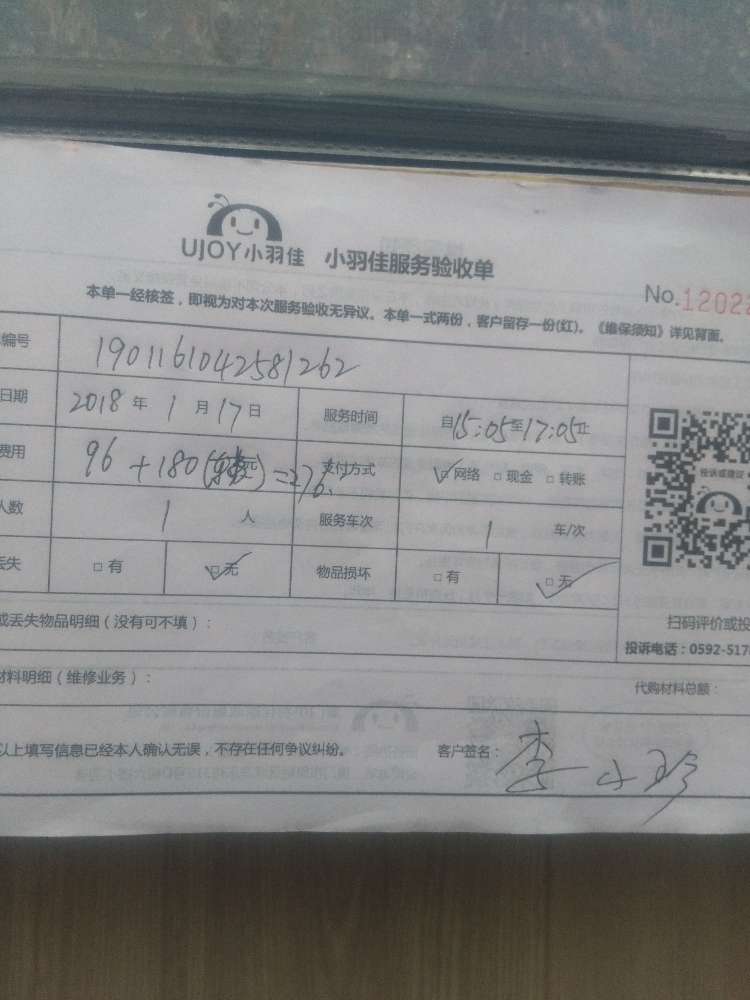 UJOY小羽佳 小羽佳服务验收单
No.12022
本单一经核签，即视为对本次服务验收无异议。本单一式两份，客户留存一份(红)。《维保须知》详见背面。
编号 1901161042581262
日期 2018 年 1 月 17 日 服务时间 自15:05至17:05止
费用 96 +180( )=276. 支付方式 ☑网络 □现金 □转账
人数 1 人 服务车次 1 车/次
丢失 □有 ☑无 物品损坏 □有 ☑无
投诉或建议
扫码评价或投
投诉电话：0592-517
或丢失物品明细（没有可不填）：
材料明细（维修业务）： 代购材料总额：
以上填写信息已经本人确认无误，不存在任何争议纠纷。 客户签名： 李小珍